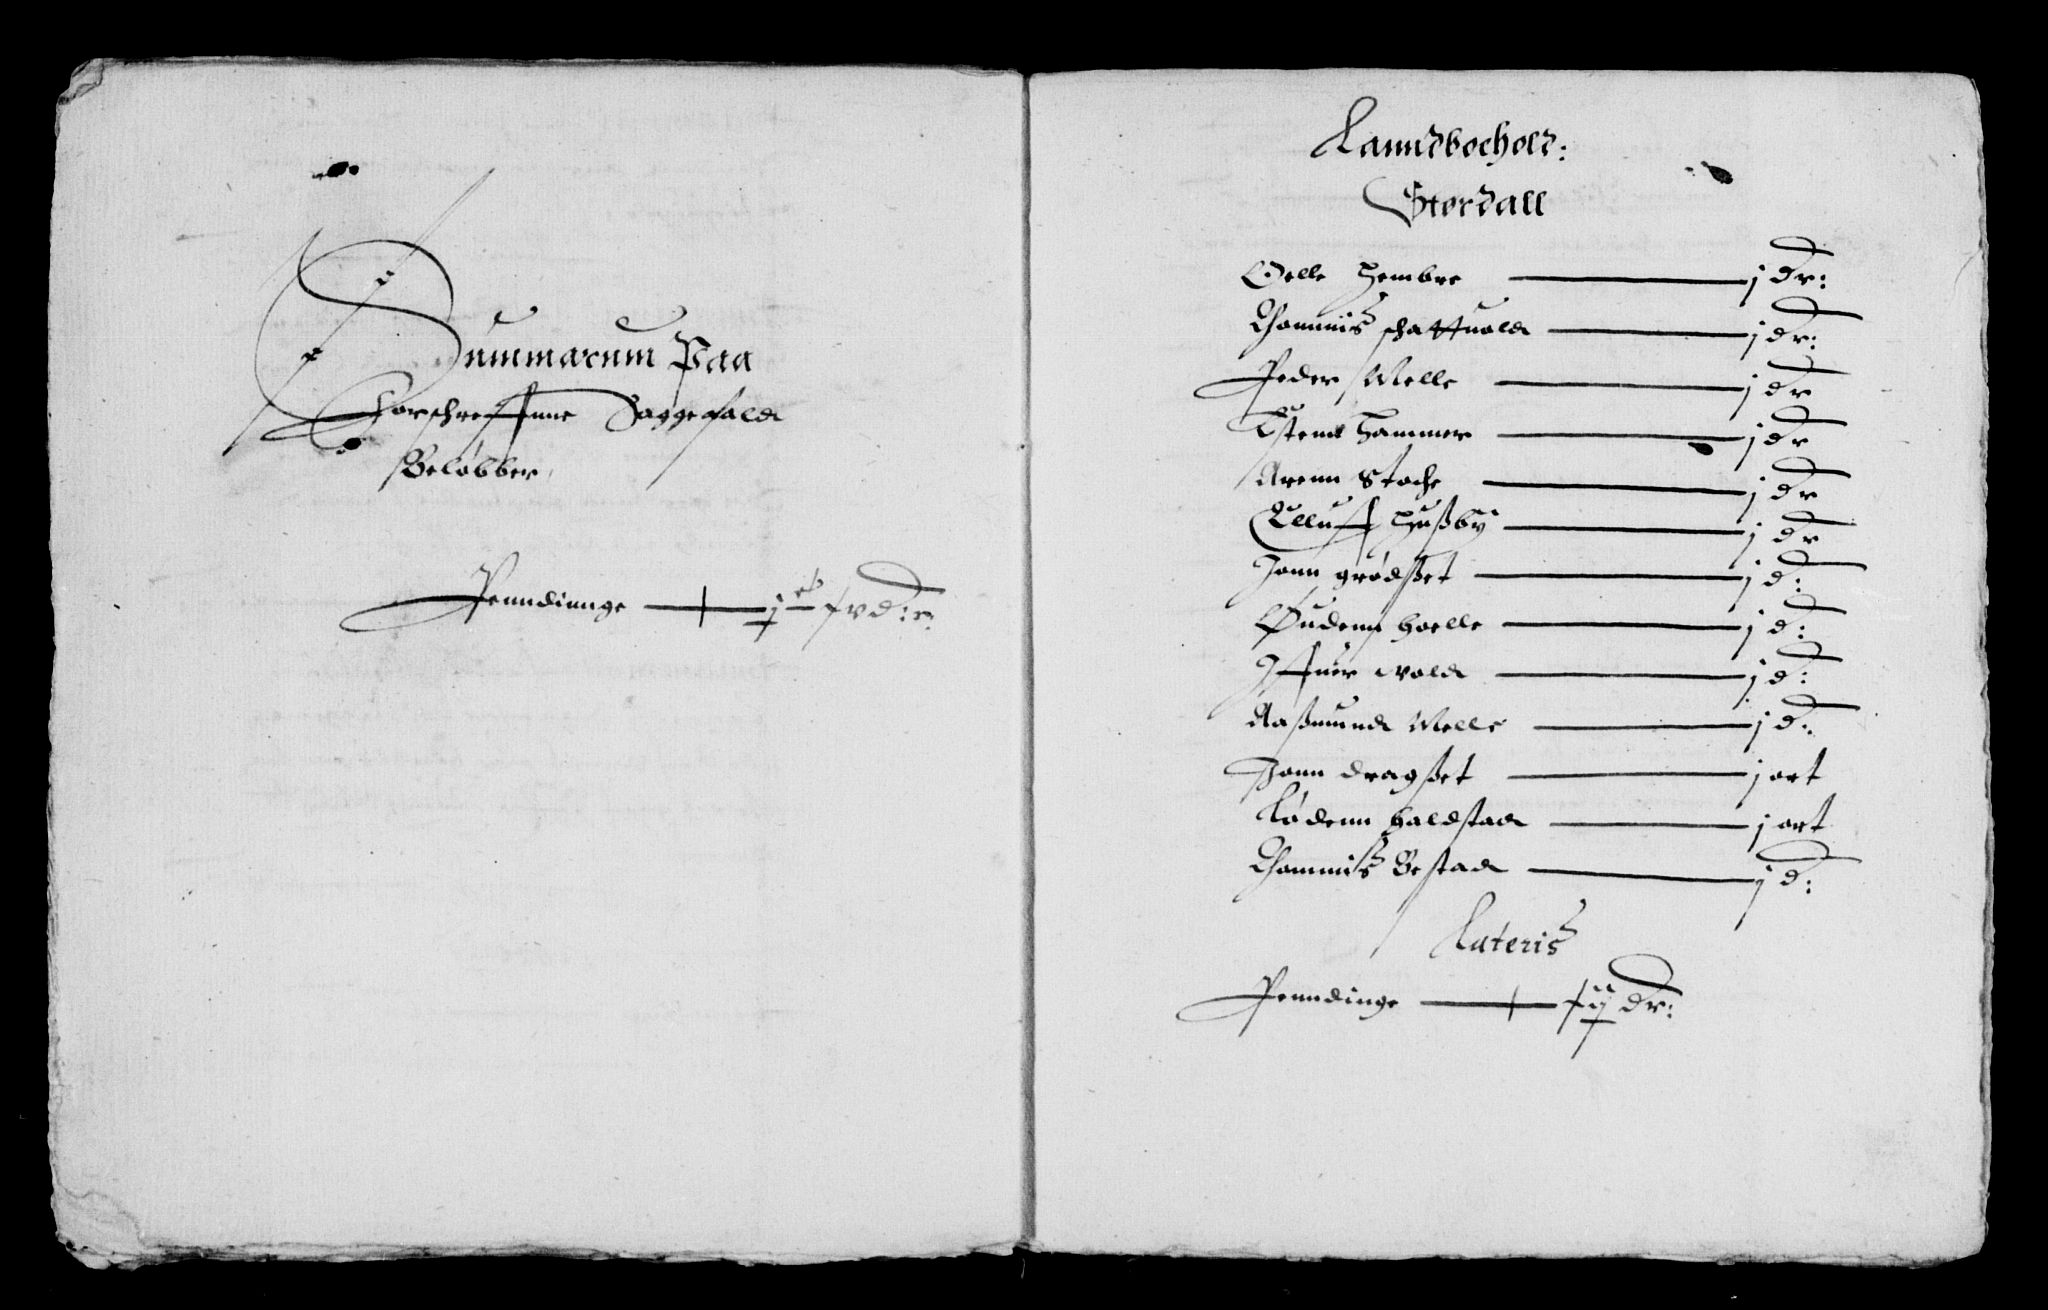 Summarum Paa
Forschreffnne Saggefald
Beløbber
Penndinnge j c xv d:r:
Lanndbochold:
Stordall
Oelle Hembre j dr:
Thommis schattuold j dr:
Peder Melle j dr
Estenn Hammer j dr
Arenn Stoche j dr
Elluff Hußby j dr
Jonn grødßet j d:
Øudenn hoelle j d:
Iffuer wold j d:
Aaßmund Melle j d:
Jonn dragßet j ort
Lødenn haldstad j ort
Thommis Bestad j d:
Lateris
Penndinge xij dr: